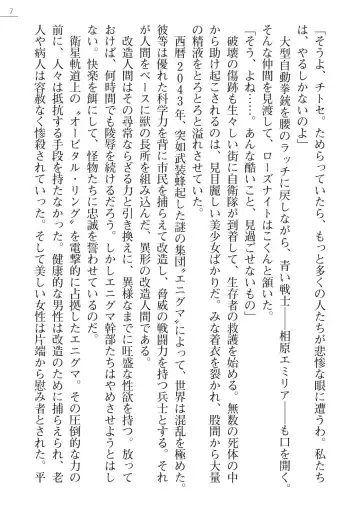 7
「そうよ、チトセ。ためらっていたら、もっと多くの人たちが悲惨な眼に遭うわ。私たち
は、やるしかないのよ」
大型自動拳銃を腰のラッチに戻しながら、青い戦士――相原エミリア――も口を開く。
そんな仲間を見渡して、ローズナイトはこくんと頷いた。
「そう、よね……。あんな酷いこと、見過ごせないもの」
破壊の傷跡も生々しい街に自衛隊が到着して、生存者の救護を始める。無数の死体の中
から助け起こされるのは、見目麗しい美少女ばかりだ。みな着衣を裂かれ、股間から大量
の精液をとろとろと溢れさせていた。
西暦2043年、突如武装蜂起した謎の集団〝エニグマ〟によって、世界は混乱を極めた。
彼等は優れた科学力を背に市民を捕らえて改造し、脅威の戦闘力を持つ兵士とする。それ
が人間をベースに獣の長所を組み込んだ、異形の改造人間である。
改造人間はその尋常ならざる力と引き換えに、異様なまでに旺盛な性欲を持つ。放って
おけば、何時間でも陵辱を続けるだろう。しかしエニグマ幹部たちはやめさせようとはし
ない。快楽を餌にして、怪物たちに忠誠を誓わせているのだ。
衛星軌道上の〝オービタル・リング〟を電撃的に占拠したエニグマ。その圧倒的な力の
前に、人々は抵抗する手段を持たなかった。健康的な男性は改造のために捕らえられ、老
人や病人は容赦なく惨殺されていった。そして美しい女性は片端から慰み者とされた。平